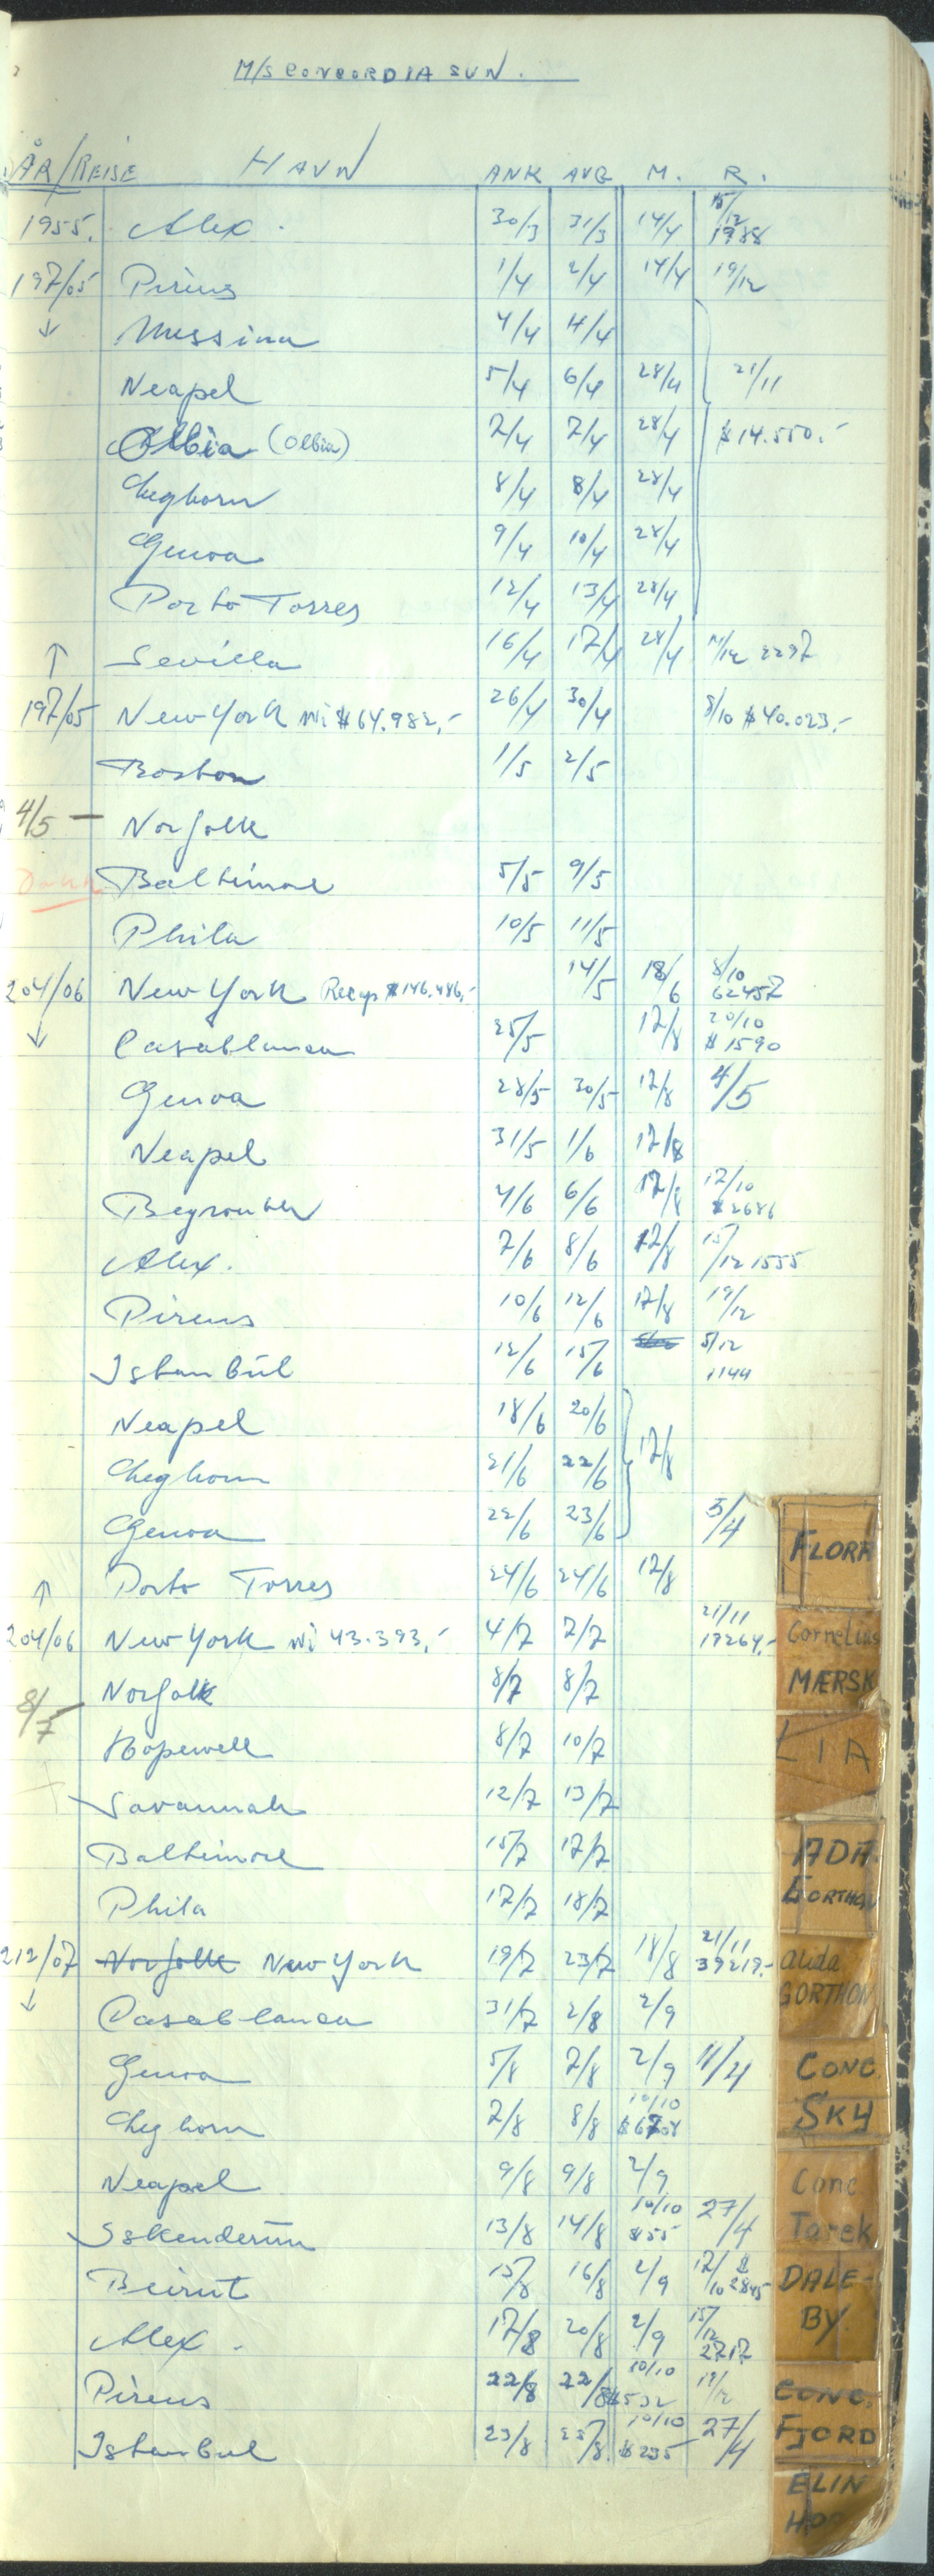 M/S CONCORDIA SUN.
ÅR/REISE HAVN ANK AVG M. R.
1955. Alex. 30/3 31/3 14/4 15/12 1988
197/05 Pireus 1/4 2/4 14/4 19/12
↓ Messina 4/4 4/4
Neapel 5/4 6/4 28/4 21/11
Olbia (Olbia) 7/4 7/4 28/4 $14.550.-
Leghorn 8/4 8/4 28/4
Genoa 9/4 10/4 28/4
Porto Torres 12/4 13/4 28/4
↑ Sevilla 16/4 17/4 28/4 2297
197/05 New York mi $64.982,- 26/4 30/4 8/10 $40.023.-
Boston 1/5 2/5
4/5 — Norfolk
Baltimore 5/5 9/5
Phila 10/5 11/5
204/06 New York Recap $146.486,- 14/5 18/6 8/10 62457
↓ Casablanca 25/5 17/8 20/10 $1590
Genoa 28/5 30/5 17/8 4/5
Neapel 31/5 1/6 17/8
Beyrouth 4/6 6/6 17/8 17/10 $2686
Alex. 7/6 8/6 17/8 15/12 1555
Pireus 10/6 12/6 17/8 19/12
Istanbul 12/6 15/6 5/12 1144
Neapel 18/6 20/6
Leghorn 21/6 22/6 17/8
Genoa 22/6 23/6 5/4
Porto Torres 24/6 24/6 17/8
↑
204/06 New York mi 43.393,- 4/7 7/7 21/11 17264,-
8/7 Norfolk 8/7 8/7
Hopewell 8/7 10/7
Savannah 12/7 13/7
Baltimore 15/7 17/7
Phila 17/7 18/7
212/07 Norfolk New York 19/7 23/7 18/8 21/11 39219.-
↓ Casablanca 31/7 2/8 2/9
Genoa 5/8 7/8 2/9 11/4
Leghorn 7/8 8/8 10/10
Neapel 9/8 9/8 2/9
Iskenderun 13/8 14/8 10/10 $55 27/4
Beirut 15/8 16/8 2/9 17/10 $2845
Alex. 17/8 20/8 2/9 15/12 2717
Pireus 22/8 22/8 10/10 $532 19/12
Istanbul 23/8 25/8 10/10 $235 27/4
FLORA
Cornelius
MÆRSK
LIA
ADA
GORTHON
Alida
GORTHON
CONC.
SKY
Conc
Tarek
DALE-
BY
CONC.
FJORD
ELIN